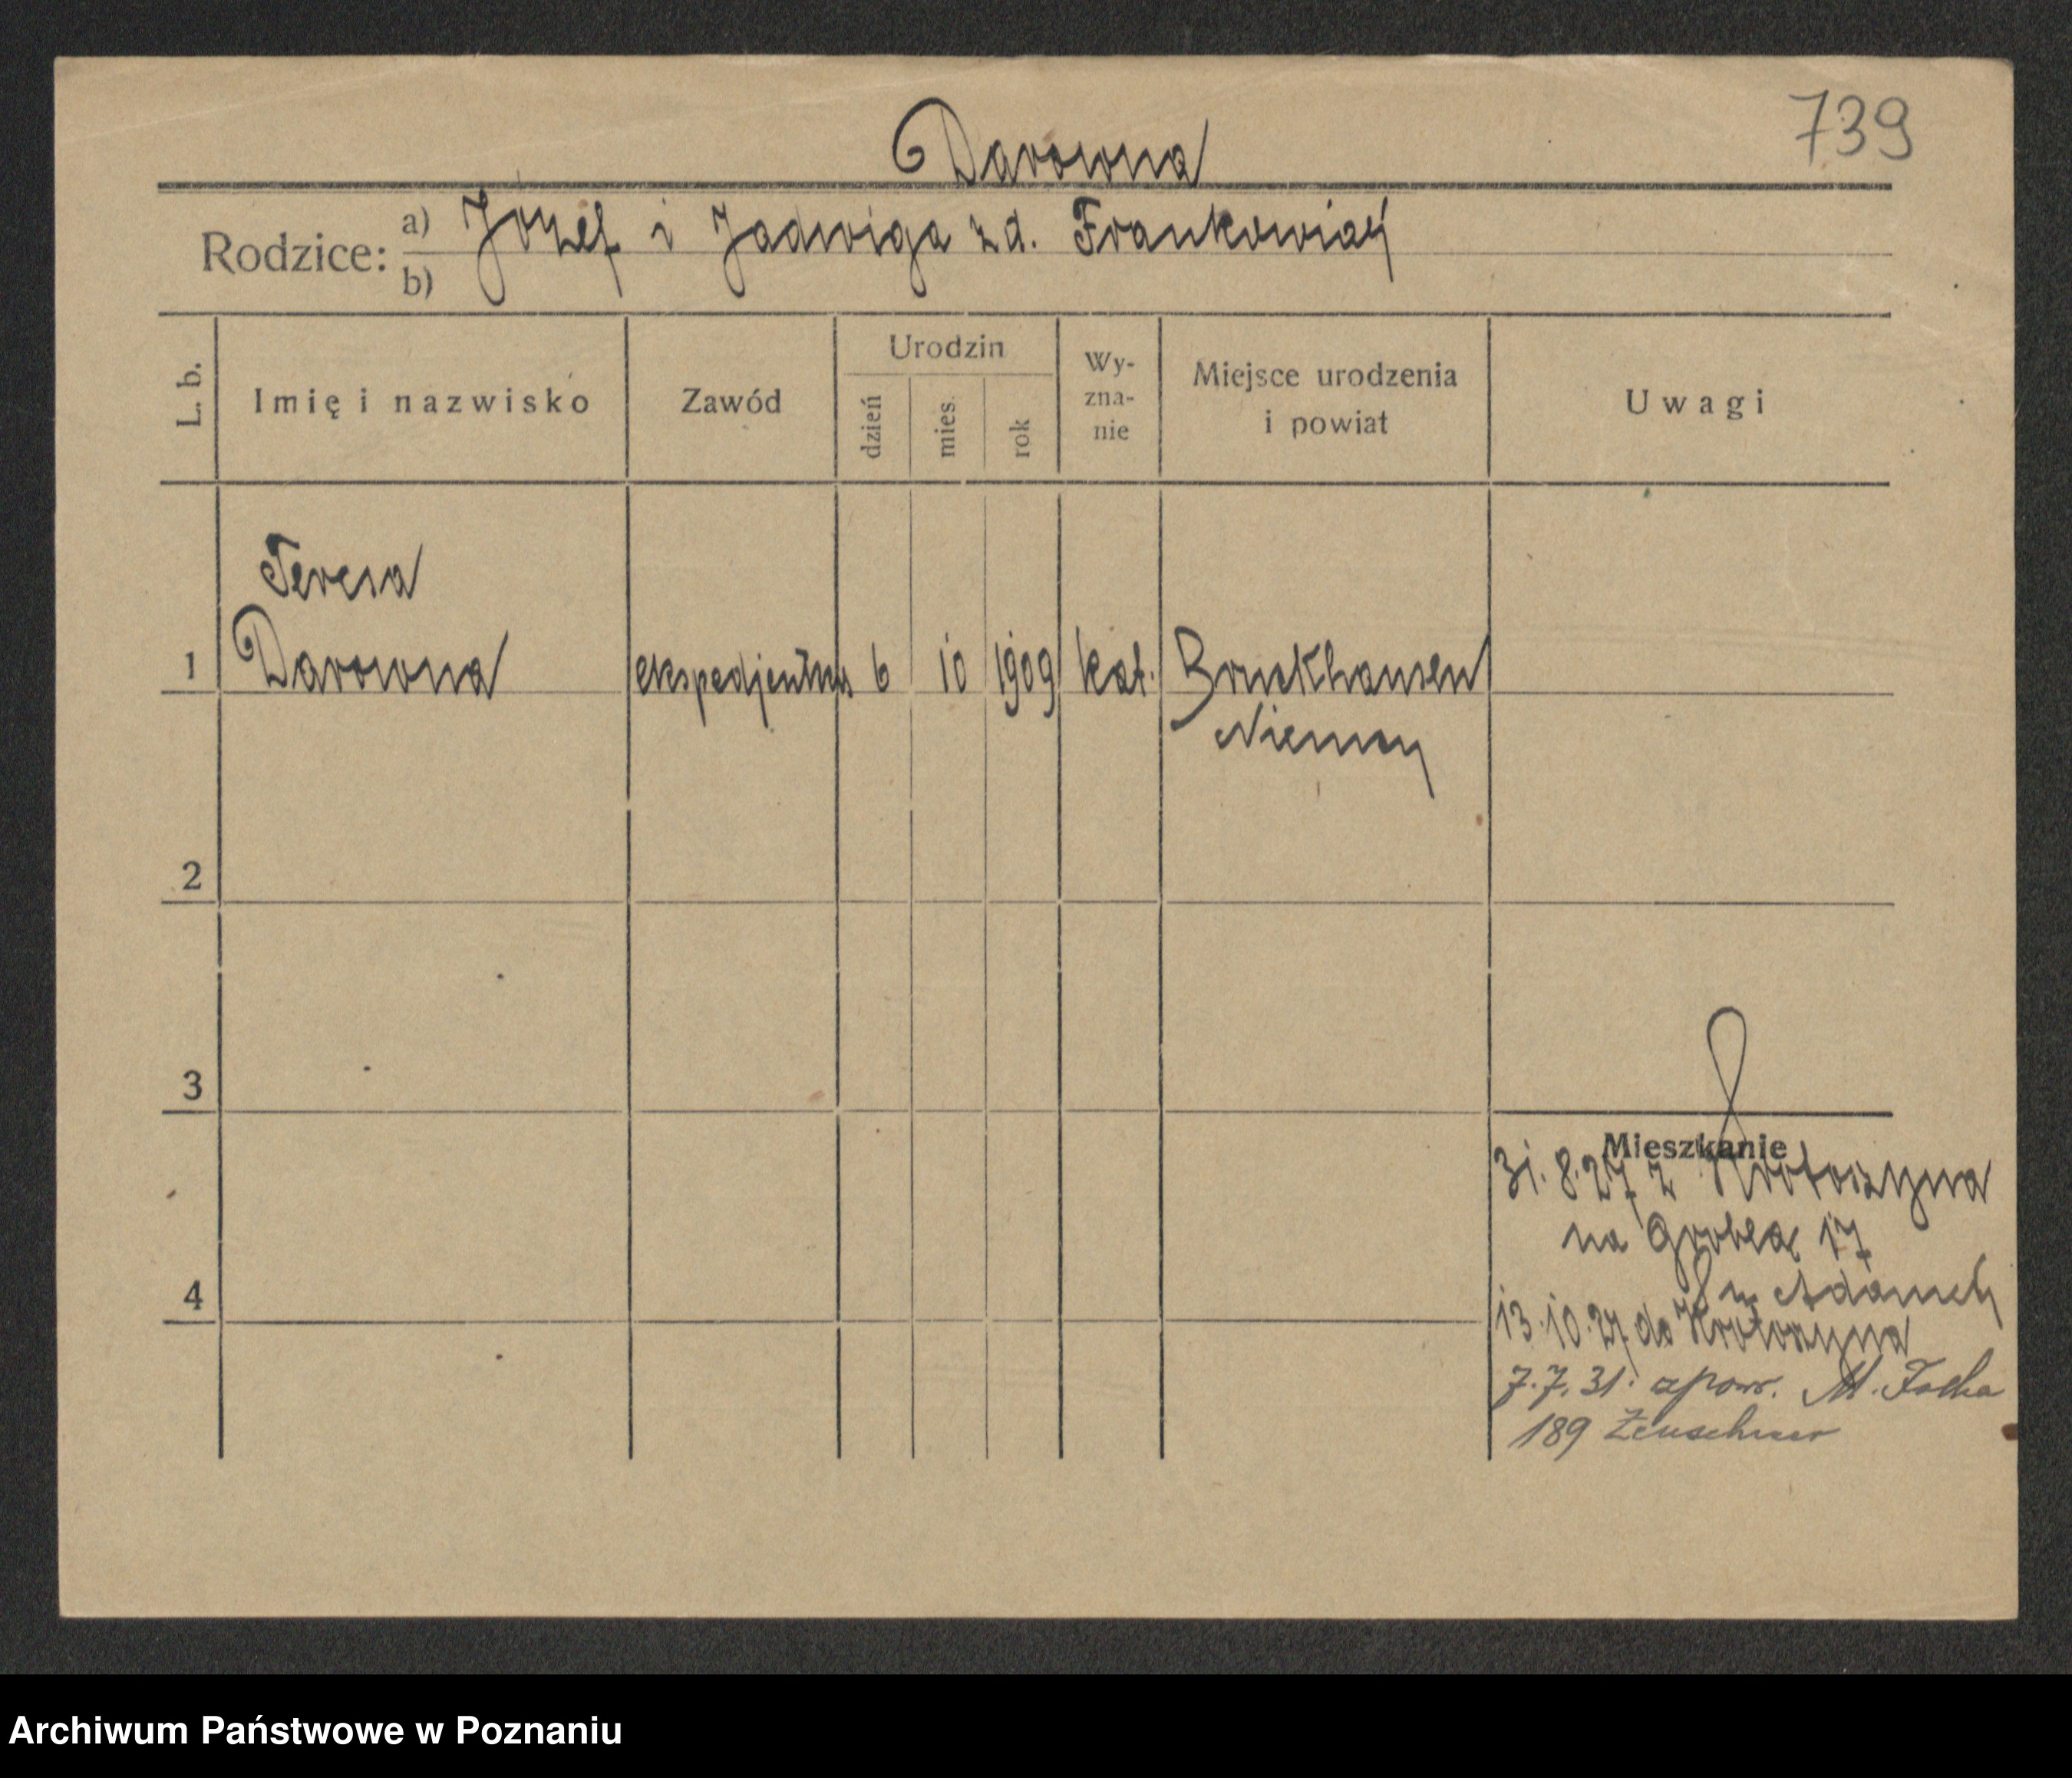 739
Darowna
Rodzice: a) Józef i Jadwiga z d. Frankowiak
b)
L. b. Imię i nazwisko Zawód Urodzin dzień mies. rok Wy-zna-nie Miejsce urodzenia i powiat Uwagi
Teresa
1 Darowna ekspedjentka 6 10 1909 kat. Bruckhausen
Niemcy
2
3
Mieszkanie
31.8.27 z Krotoszyna
na Groblę 17
u Adamch
4
13.10.27 do Krotoszyna
7.7.31. zpow. M. Focha
189 Zeuschner
Archiwum Państwowe w Poznaniu